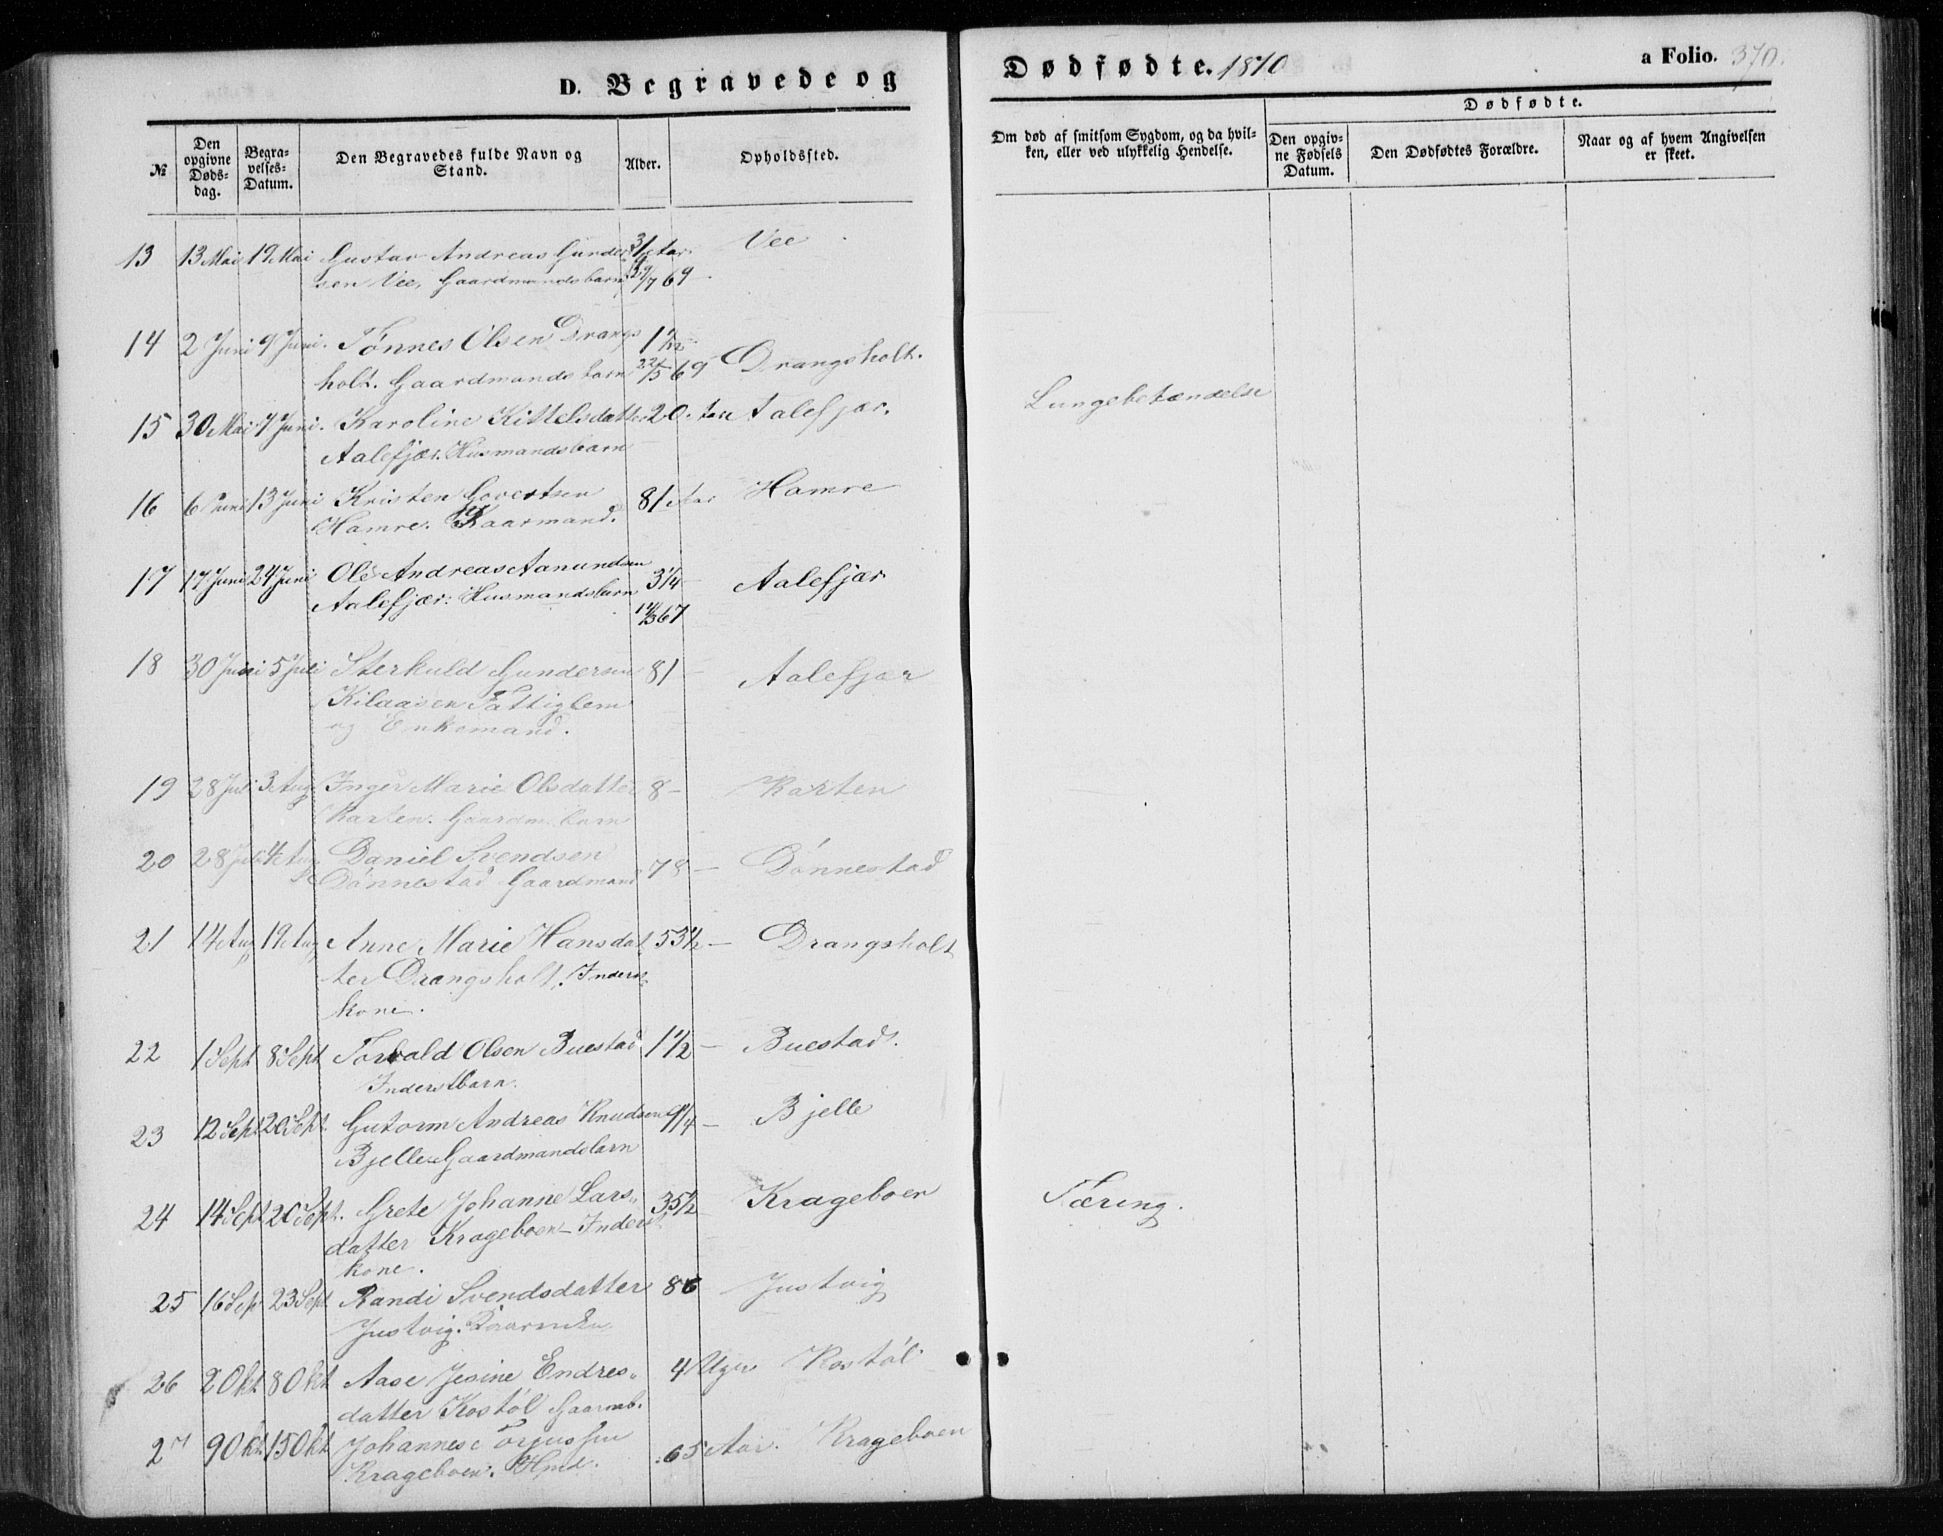 D. Begravede og Dødfødte. 1870 a Folio. 370.
№
Den opgivne Dødsdag.
Begravelses-Datum.
Den Begravedes fulde Navn og Stand.
Alder.
Opholdssted.
Om død af smitsom Sygdom, og da hvilken, eller ved ulykkelig Hendelse.
Dødfødte.
Den opgivne Fødsels Datum.
Den Dødfødtes Forældre.
Naar og af hvem Angivelsen er skeet.
13 13 Mai 19 Mai Gustav Andreas Gunder Aar Vee
sen Vee, Gaardmandsbarn 69
14 2 Juni 9 Juni. Tønnes Olsen Drangs 1
holt. Gaardmandsbarn 22/5 69 Drangsholt.
15 30 Mai 7 Juni. Karoline Kittelsdatter 20 Aalefjær. Lungebetændelse
Aalefjær. Husmandsbarn
16 6 Juni 13 Juni Kristen Govertsen 81 Aar Hamre
Hamre. Kaarmand.
17 17 Juni 24 Juni Ole Andreas Aanundsen 3 1/4 Aalefjær
Aalefjær: Husmandsbarn 67
18 30 Juni 5 Juli Sterkuld Gundersen 81 – Aalefjær
Kilaasen Fattiglem
og Enkemand.
19 28 Juli 3 Aug Inger Marie Olsdatter 8 – Karten
Karten. Gaardm. barn
20 28 Juli 4 Aug Daniel Svendsen 78 – Dønnestad
Dønnestad Gaardmand
21 14 Aug 19 Aug Anne Marie Hansdat 53 1/2 – Drangsholt
ter Drangsholt, Inderst
kone.
22 1 Sept 8 Sept Torvald Olsen Buestad 1 1/2 – Buestad.
Inderstbarn.
23 12 Sept 20 Sept. Gutorm Andreas Knudsen 1/4 – Bjelle
Bjelle Gaardmandsbarn
24 14 Sept 20 Sept. Grete Johanne Lars- 35 1/2 Krageboen Tæring.
datter Krageboen – Inderst
kone.
25 16 Sep 23 Sept Randi Svendsdatter 86 Justvig
Justvig.
26 2 Okt 8 Okt Aase Jesine Endres- 4 Uger Kostøl
datter Kostøl Gaarmb.
27 9 Okt 15 Okt Johannes Torjussen 65 Aar. Krageboen
Krageboen. Hmd.